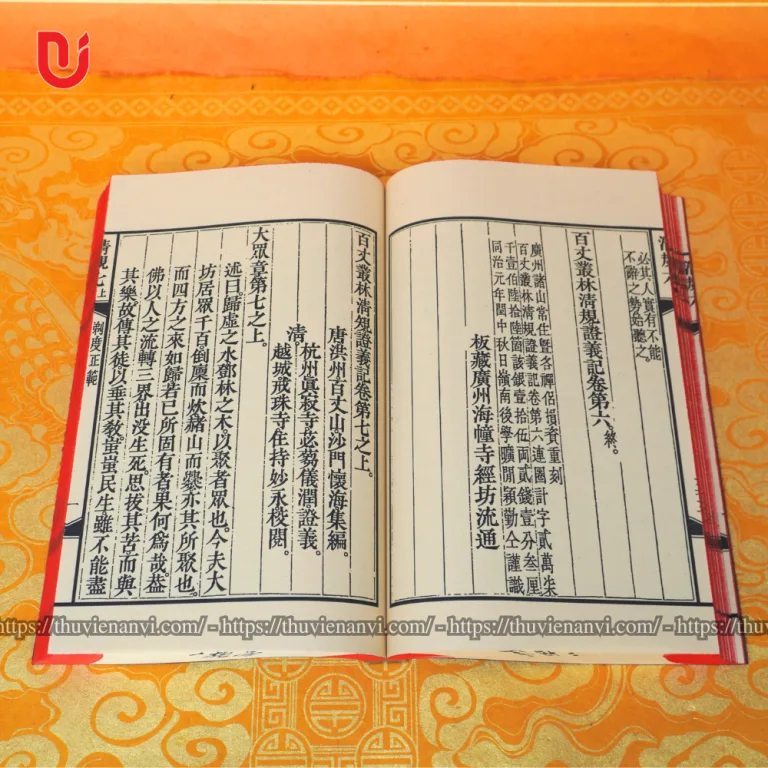 清規六
必其人實有不能
不辭之勢始聽之。
百丈叢林清規證義記卷第六。終。
廣州諸山常住曁各禪侶捐資重刻
百丈叢林清規證義記卷第六連圈計字貳萬柒
千壹伯陸拾陸箇該銀壹拾伍兩貳錢壹分叁厘
同治元年閏中秋日嶺南後學曠閒穎勤仝謹識
板藏廣州海幢寺經坊流通
百丈叢林清規證義記卷第七之上。
唐洪州百丈山沙門懷海集編。
清
杭州眞寂寺苾蒭儀潤。證義。
越城戒珠寺住持妙永校閱。
大眾章第七之上。
述曰歸虛之水鄧林之木以聚者眾也。今夫大
坊居眾千百倒廩而炊赭山而爨亦其所聚也。
而四方之來如歸若已所固有者果何爲哉葢
佛以人之流轉三界出没生死。思拔其苦而與
其樂故傳其徒以垂其敎蚩蚩民生雖不能盡
清規七上
剃度正範
一
https://thuvienanvi.com/ - https://thuvienanvi.com/ - https://thuvienanvi.com/ - https://thuvienanvi.com/